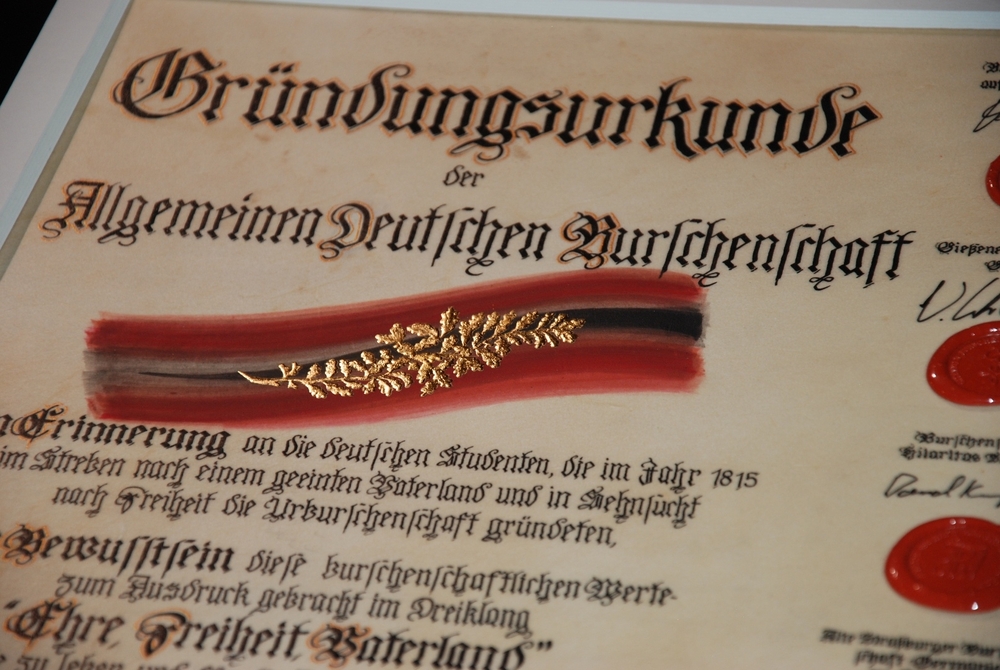 Gründungsurkunde
der
Allgemeinen Deutschen Burschenschaft
Erinnerung an die deutschen Studenten, die im Jahr 1815
im Streben nach einem geeinten Vaterland und in Sehnsucht
nach Freiheit die Urburschenschaft gründeten,
Bewusstsein diese burschenschaftlichen Werte
zum Ausdruck gebracht im Dreiklang
"Ehre, Freiheit Vaterland"
zu leben und
Alte Straßburger